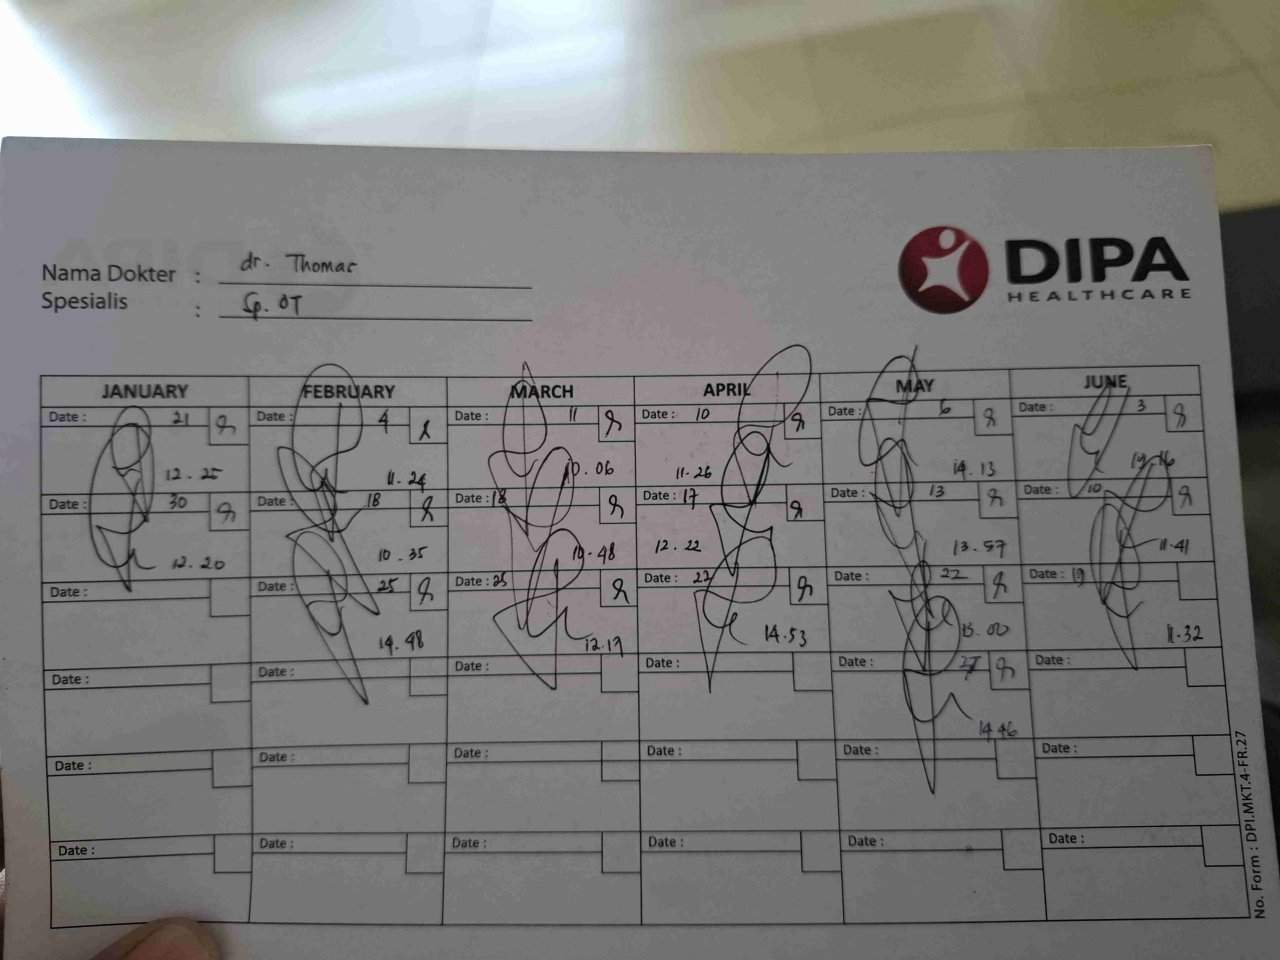 Nama Dokter : dr. Thomas
Spesialis : Sp. OT
DIPA
HEALTHCARE
JANUARY FEBRUARY MARCH APRIL MAY JUNE
Date : 21 Date : 4 Date : 11 Date : 10 Date : 6 Date : 3
12.25 11.24 10.06 11.26 14.13
Date : 30 Date : 18 Date : 18 Date : 17 Date : 13 Date : 10
12.20 10.35 10.48 12.22 13.57 11.41
Date : Date : 25 Date : 25 Date : 22 Date : 22 Date : 19
14.48 12.17 14.53 15.00 11.32
Date : Date : Date : Date : Date : 27 Date :
14.46
Date : Date : Date : Date : Date : Date :
Date : Date : Date : Date : Date : Date :
No. Form : DPI.MKT.4-FR.27